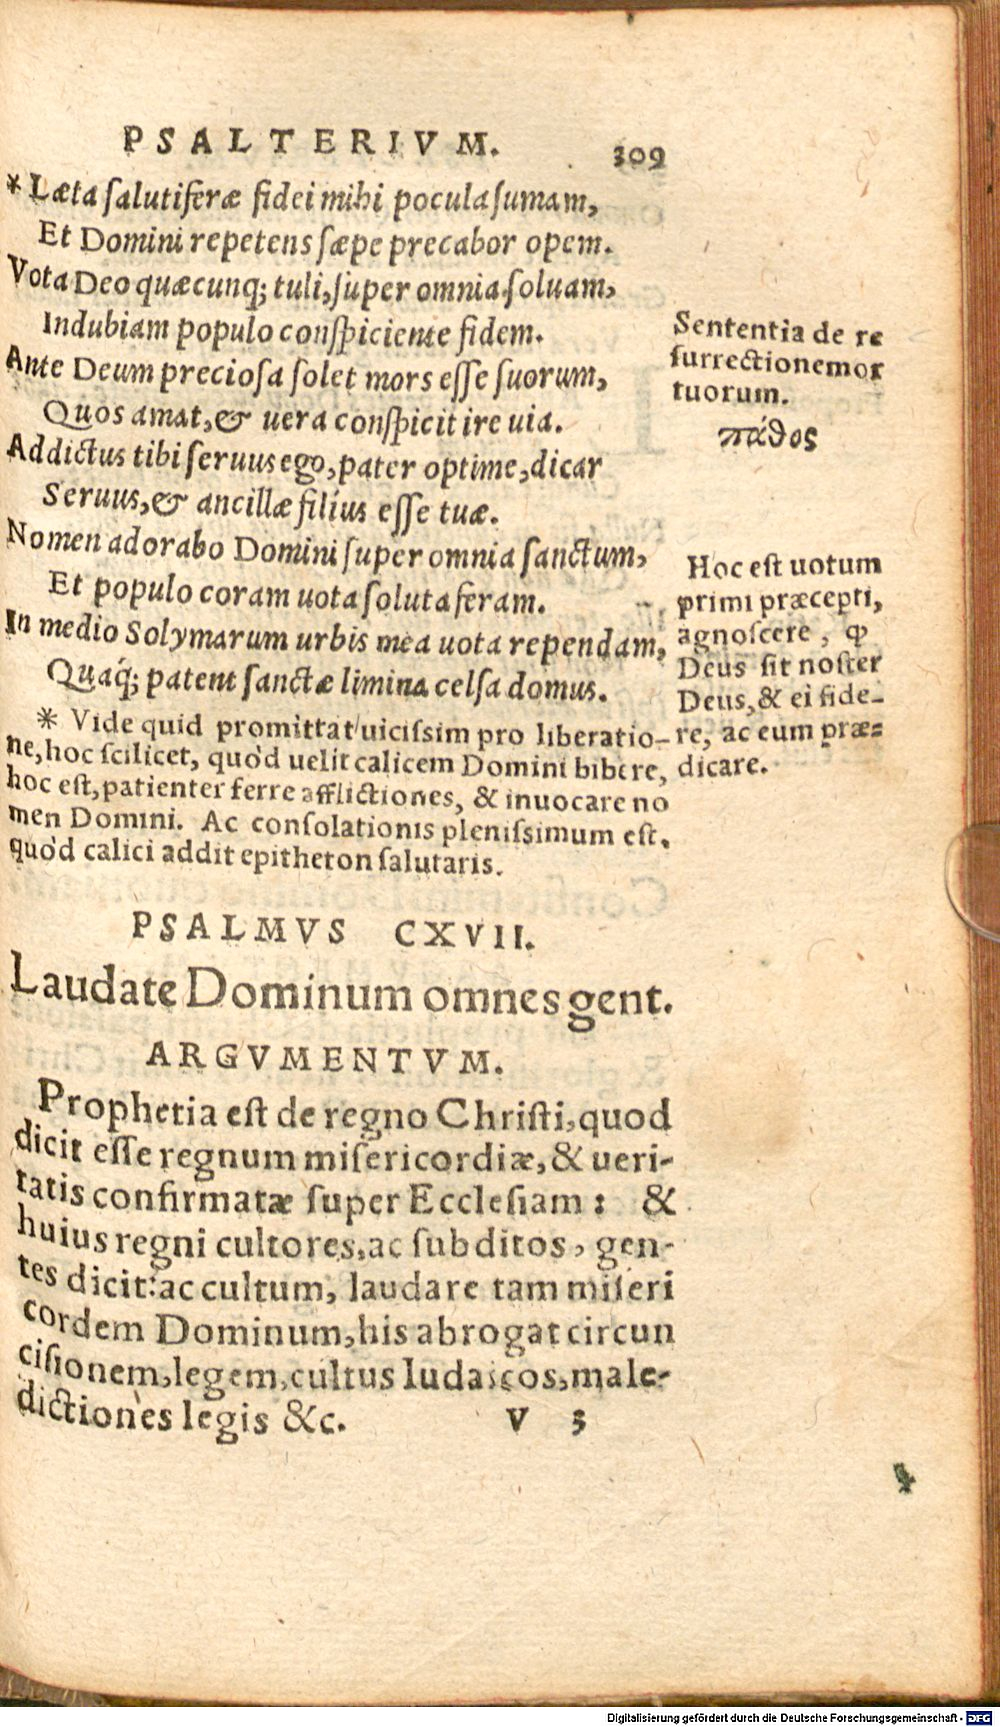 PSALTERIVM. 309
* Læta salutiferæ fidei mihi pocula sumam,
Et Domini repetens sæpe precabor opem.
Vota Deo quæcunq; tuli, super omnia soluam,
Indubiam populo conspiciente fidem.
Ante Deum preciosa solet mors esse suorum,
Quos amat, & uera conspicit ire uia.
Addictus tibi seruus ego, pater optime, dicar
Seruus, & ancillæ filius esse tuæ.
Nomen adorabo Domini super omnia sanctum,
Et populo coram uota soluta feram.
In medio Solymarum urbis mea uota rependam,
Quaq́; patent sanctæ limina celsa domus.
* Vide quid promittat uicissim pro liberatio-
ne, hoc scilicet, quòd uelit calicem Domini bibere,
hoc est, patienter ferre afflictiones, & inuocare no
men Domini. Ac consolationis plenissimum est,
quòd calici addit epitheton salutaris.
Sententia de re
surrectione mor
tuorum.
πάθος
Hoc est uotum
primi præcepti,
agnoscere, ꝙ
Deus sit noster
Deus, & ei fide-
re, ac eum præ-
dicare.
PSALMVS CXVII.
Laudate Dominum omnes gent.
ARGVMENTVM.
Prophetia est de regno Christi, quod
dicit esse regnum misericordiæ, & ueri-
tatis confirmatæ super Ecclesiam: &
huius regni cultores, ac subditos, gen-
tes dicit: ac cultum, laudare tam miseri
cordem Dominum, his abrogat circun
cisionem, legem, cultus Iudaicos, male-
dictiones legis &c. V 3
Digitalisierung gefördert durch die Deutsche Forschungsgemeinschaft - DFG